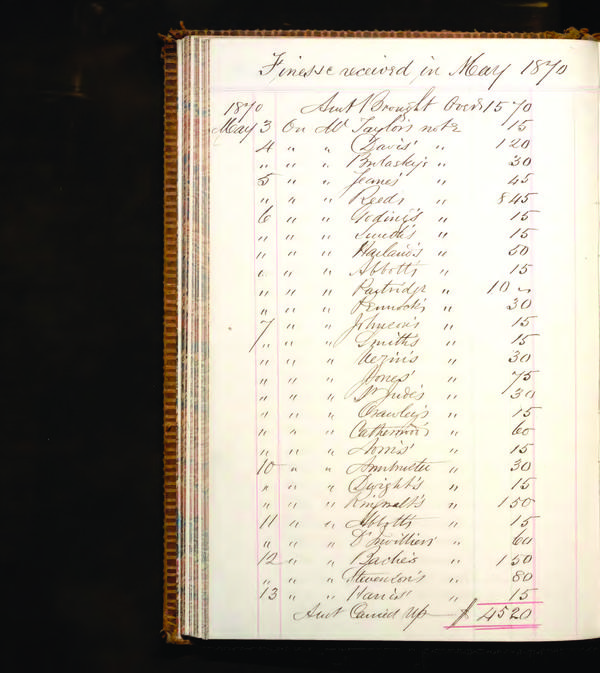 Finesse received in May 1870
1870 Amt Brought Over 15 70
May 3 On Mr Taylor's note 15
4 " " Davis' " 1 20
" " " " 30
5 " " Jeanes' " 45
" " " Reeds " 8 45
6 " " Goding's " 15
" " " " 15
" " " Harland's " 50
" " " Abbott's " 15
" " " Partridge " 10 "
" " " Pennock's " 30
7 " " Johnson's " 15
" " " Smith's " 15
" " " Vezin's " 30
" " " Jones' " 75
" " " St Jude's " 30
" " " Crawley's " 15
" " " Catherwood's " 60
" " " Norris' " 15
10 " " " 30
" " " Dwight's " 15
" " " Ringwalt's " 1 50
11 " " Abbotts " 15
" " " D'Invilliers' " 60
12 " " Bache's " 1 50
" " " Stevenson's " 80
13 " " Harris' " 15
Amt Carried Up $ 45 20